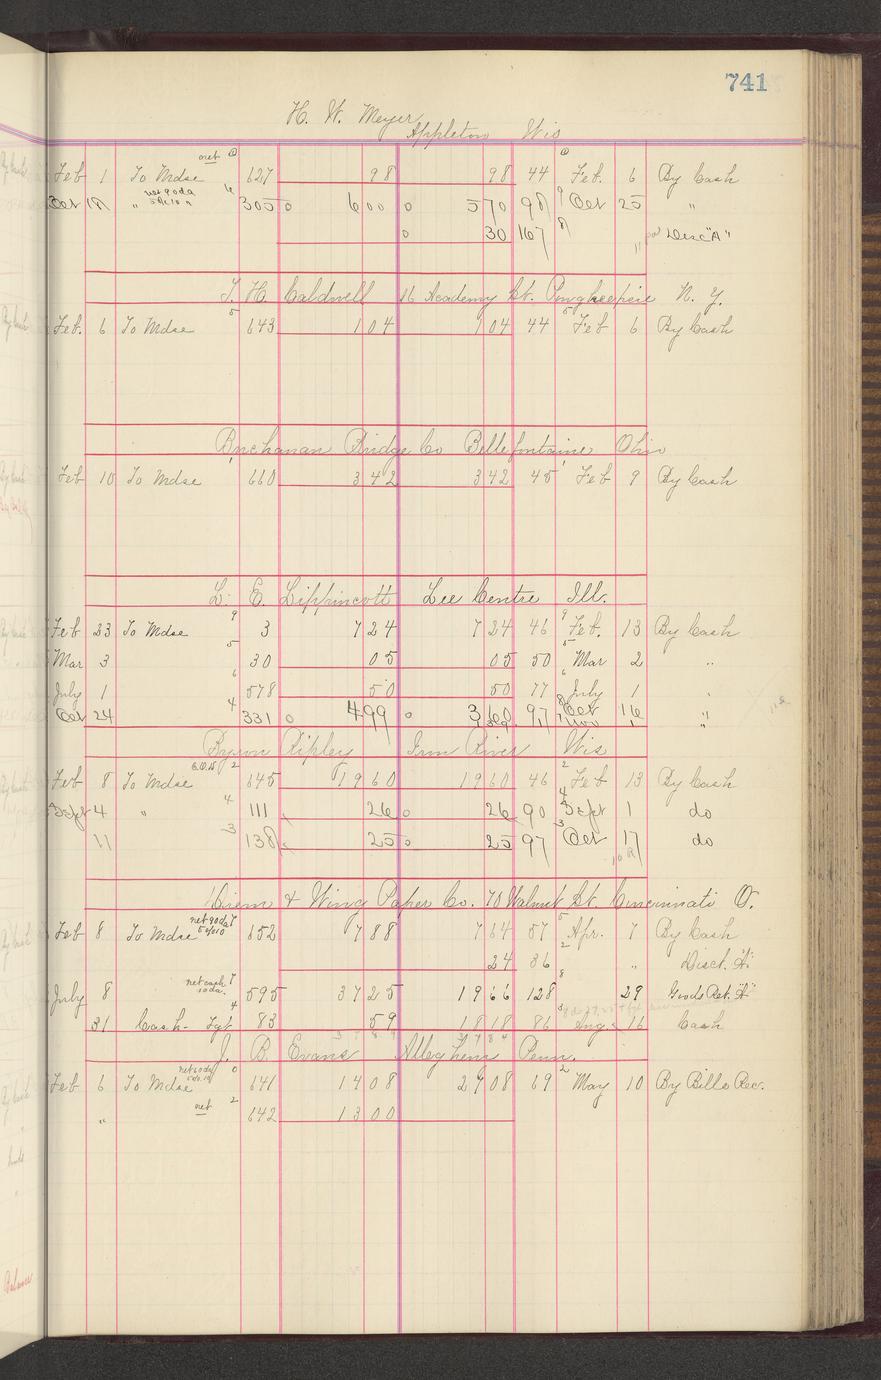 741
H. W. Meyer
Appleton Wis
net
Feb 1 To Mdse 627 98 98 44 Feb. 6 By Cash
Oct 18 " 305 600 570 98 Oct 25 "
30 167 " Disc "A"
T. H. Caldwell 16 Academy St. Poughkeepsie N. Y.
Feb. 6 To Mdse 5 643 104 104 44 5 Feb 6 By Cash
Buchanan Bridge Co Bellefontaine Ohio
Feb 10 To Mdse 660 342 342 45 Feb 9 By Cash
L. E. Lippincott Lee Centre Ill.
Feb 23 To Mdse 9 3 724 724 46 9 Feb. 13 By Cash
Mar 3 5 30 05 05 50 5 Mar 2 "
July 1 6 578 50 50 77 6 July 1 "
Oct 24 4 331 499 97 Oct 16 "
Byron Ripley Iron River Wis
Feb 8 To Mdse 2 645 1960 1960 46 2 Feb 13 By Cash
Sept 4 " 4 111 26 26 90 4 Sept 1 do
11 3 138 25 25 97 3 Oct 17 do
& Wing Paper Co. 70 Walnut St. Cincinnati O.
Feb 8 To Mdse 7 652 788 764 57 5 Apr. 7 By Cash
24 86 2 " Disct. "A"
net cash
July 8 595 3725 1966 128 8 29 Goods Ret. "A"
31 Cash - Fgt 4 83 59 1818 86 Aug. 16 Cash
J. B. Evans Allegheny Penn.
Feb 6 To Mdse 0 641 1408 2708 69 2 May 10 By Bills Rec.
" net 2 642 1300